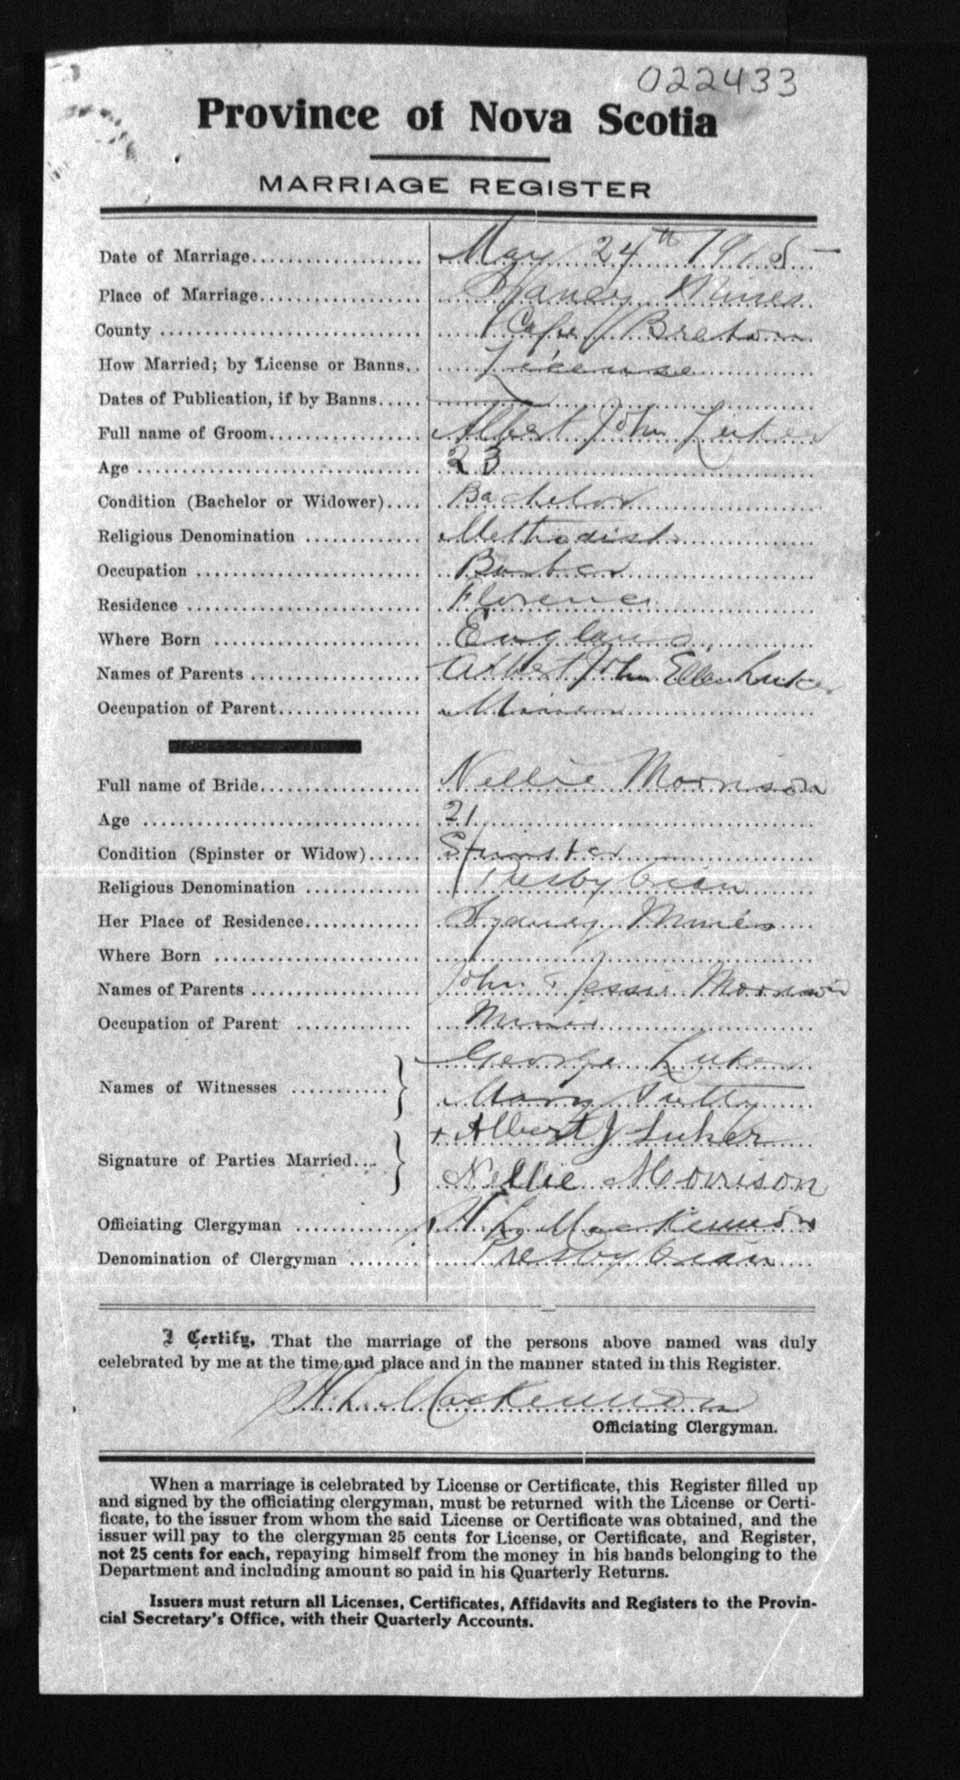 022433
Province of Nova Scotia
MARRIAGE REGISTER
Date of Marriage.................... May 24th 1915
Place of Marriage................... Sydney Mines
County .......................... Cape Breton
How Married; by License or Banns.. License
Dates of Publication, if by Banns.....
Full name of Groom................. Albert John Luker
Age ............................. 23
Condition (Bachelor or Widower).... Bachelor
Religious Denomination ............. Methodist
Occupation ......................... Barber
Residence .......................... Florence
Where Born ....................... England
Names of Parents ................... Albert John Ellen Luker
Occupation of Parent................ Miner
Full name of Bride................... Nellie Morrison
Age ............................... 21
Condition (Spinster or Widow)...... Spinster
Religious Denomination .............. Presbyterian
Her Place of Residence............. Sydney Mines
Where Born .......................
Names of Parents ................... John & Jessie Morrison
Occupation of Parent ............. Miner
George Luker
Names of Witnesses ...........
Mary Tutty
+ Albert J Luker
Signature of Parties Married....
Nellie Morrison
Officiating Clergyman ............. MacKinnon
Denomination of Clergyman ........ Presbyterian
I Certify, That the marriage of the persons above named was duly
celebrated by me at the time and place and in the manner stated in this Register.
MacKinnon
Officiating Clergyman.
When a marriage is celebrated by License or Certificate, this Register filled up
and signed by the officiating clergyman, must be returned with the License or Certi-
ficate, to the issuer from whom the said License or Certificate was obtained, and the
issuer will pay to the clergyman 25 cents for License, or Certificate, and Register,
not 25 cents for each, repaying himself from the money in his hands belonging to the
Department and including amount so paid in his Quarterly Returns.
Issuers must return all Licenses, Certificates, Affidavits and Registers to the Provin-
cial Secretary's Office, with their Quarterly Accounts.